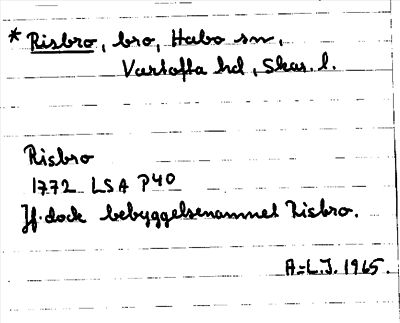 * Risbro, bro, Habo sn,
Vartofta hd, Skar. l.
Risbro
1772 LSA P40
Jf. dock bebyggelsenamnet Risbro.
A-L.J. 1965.